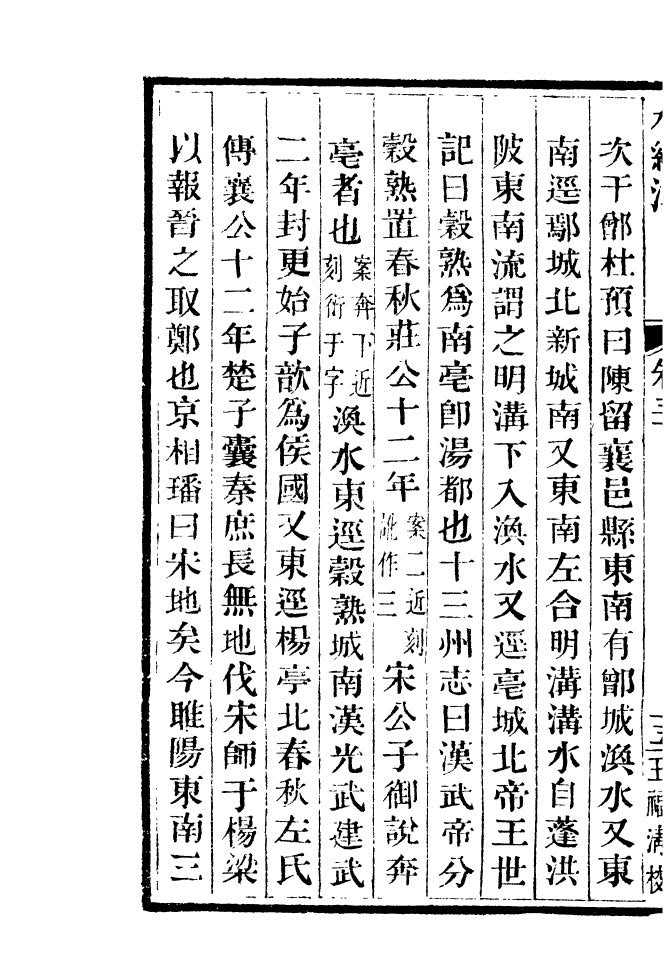 次于鄫杜預曰陳留襄邑縣東南有鄫城渙水又東
南逕鄢城北新城南又東南左合明溝溝水自蓬洪
陂東南流謂之明溝下入渙水又逕亳城北帝王世
記曰穀熟為南亳卽湯都也十三州志曰漢武帝分
穀熟置春秋莊公十二年案二近刻訛作三宋公子御說奔
亳者也案奔下近刻衍于字渙水東逕穀熟城南漢光武建武
二年封更始子歆為侯國又東逕楊亭北春秋左氏
傳襄公十二年楚子囊秦庶長無地伐宋師于楊梁
以報晉之取鄭也京相璠曰宋地矣今睢陽東南三